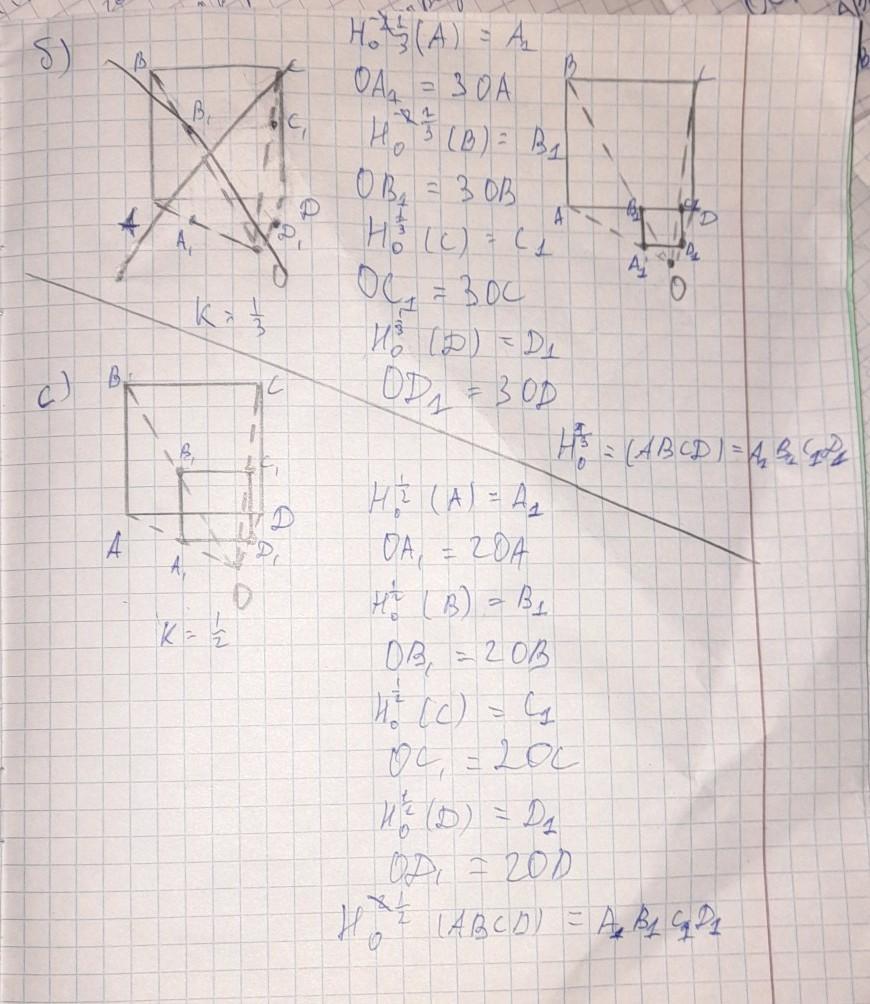 б)
B
C
B₁
C₁
A
A₁
D₁
D
O
K = 1/3
H₀^(1/3) (A) = A₁
OA₁ = 3OA
H₀^(1/3) (B) = B₁
OB₁ = 3OB
H₀^(1/3) (C) = C₁
OC₁ = 3OC
H₀^(1/3) (D) = D₁
OD₁ = 3OD
B
C
A
B₁
C₁
D
A₁
D₁
O
H₀^(1/3) = (ABCD) = A₁B₁C₁D₁
c)
B
C
B₁
C₁
A
D
A₁
D₁
O
K = 1/2
H₀^(1/2) (A) = A₁
OA₁ = 2OA
H₀^(1/2) (B) = B₁
OB₁ = 2OB
H₀^(1/2) (C) = C₁
OC₁ = 2OC
H₀^(1/2) (D) = D₁
OD₁ = 2OD
H₀^(1/2) (ABCD) = A₁B₁C₁D₁